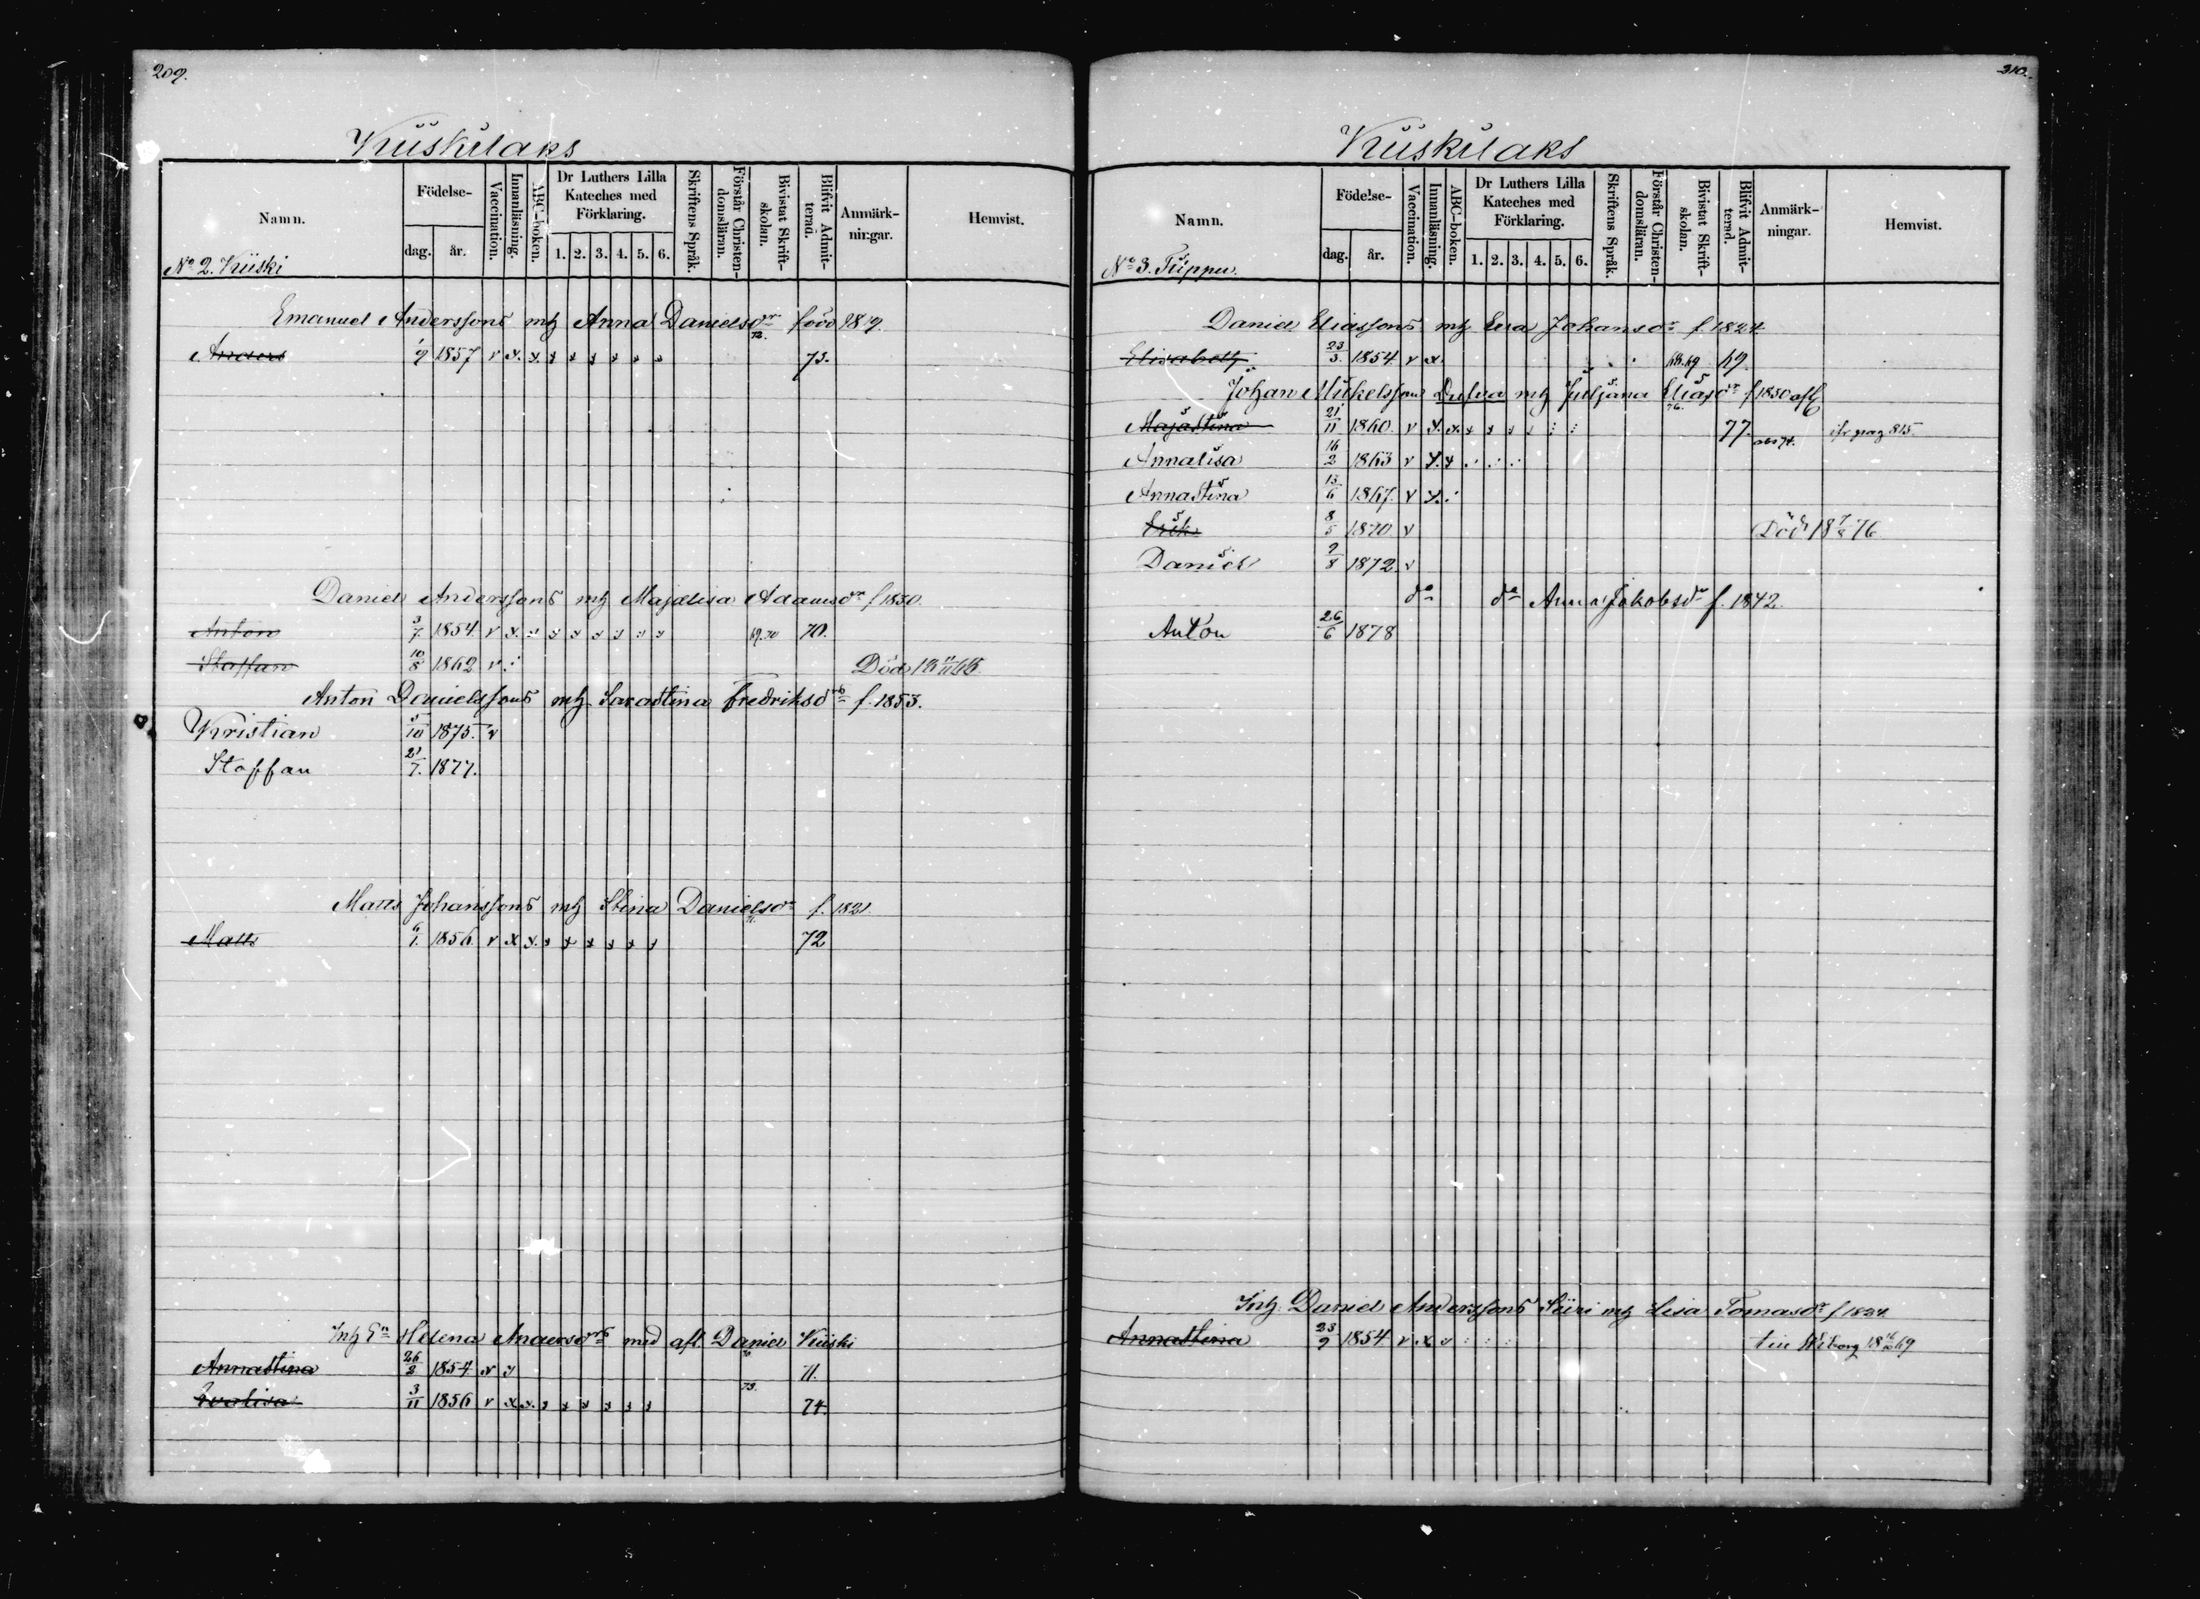 209.
Kiiskilaks
Namn.
Födelse-
dag.
år.
Vaccination.
Innanläsning.
ABC-boken.
Dr Luthers Lilla Kateches med Förklaring.
1. 2. 3. 4. 5. 6.
Skriftens Språk.
Förstår Christendomsläran.
Bivistat Skriftskolan.
Blifvit Admitterad.
Anmärkningar.
Hemvist.
No 2. Kiiski
Emanuel Anderssons mh Anna Danielsdr född 1819.
Anders 1857 v x. x. x x x x x x 72. 73.
Daniel Anderssons mh Majalisa Adamsdr f 1830.
Anton 3/7 1854. v x. x x x x x x x 69.70 70.
Staffan 10/8 1862 v Död
Anton Danielssons mh Sarastina Fredriksdr f. 1853.
Kristian 5/10 1875. v
Staffan 21/7. 1877.
Matts Johanssons mh Stina Danielsdr f. 1821.
Matts 6/1. 1856 v x x. x x x x x x 71. 72
Inh En Helena Andersdr med afl. Daniel Kiiski
Annastina 26/2 1854. v x 71.
Evalisa 3/11 1856 v x x. x x x x x x 73. 74.
310.
Kiiskilaks
Namn.
Födelse-
dag.
år.
Vaccination.
Innanläsning.
ABC-boken.
Dr Luthers Lilla Kateches med Förklaring.
1. 2. 3. 4. 5. 6.
Skriftens Språk.
Förstår Christendomsläran.
Bivistat Skriftskolan.
Blifvit Admitterad.
Anmärkningar.
Hemvist.
No 3. Tiippu.
Daniel Eliassons mh Eva Johansdr f. 1824.
Elisabeth 23/3. 1854. v x. 68.69 69.
Johan Mikelsson mh Juljana Eliasdr f 1830 afl
Majastina 21/11 1860. v x. x. x x x x 76. 77. pag 815.
Annalisa 16/2 1863 v x. x
Annastina 13/6 1867. v x.
Erik 8/5 1870. v Död 18 7/8 76
Daniel 2/8 1872. v
do do Anna Jakobsdr f. 1842.
Anton 26/6 1878
Inh. Daniel Anderssons Siiri mh Lisa Tomasdr f 1824
Annastina 23/9 1854. v x v till Wiborg 69